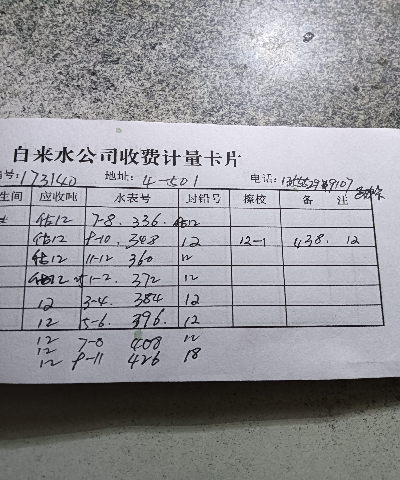 自来水公司收费计量卡片
号:173140 地址: 4-501 电话:
生间 应收吨 水表号 封铅号 擦校 备 注
估12 7-8. 336. 估12
估12 9-10. 348 12 12-1 438. 12
估12 11-12 360 12
估12 1-2. 372 12
12 3-4. 384 12
12 5-6. 396. 12
12 7-8 408 12
12 9-11 426 18